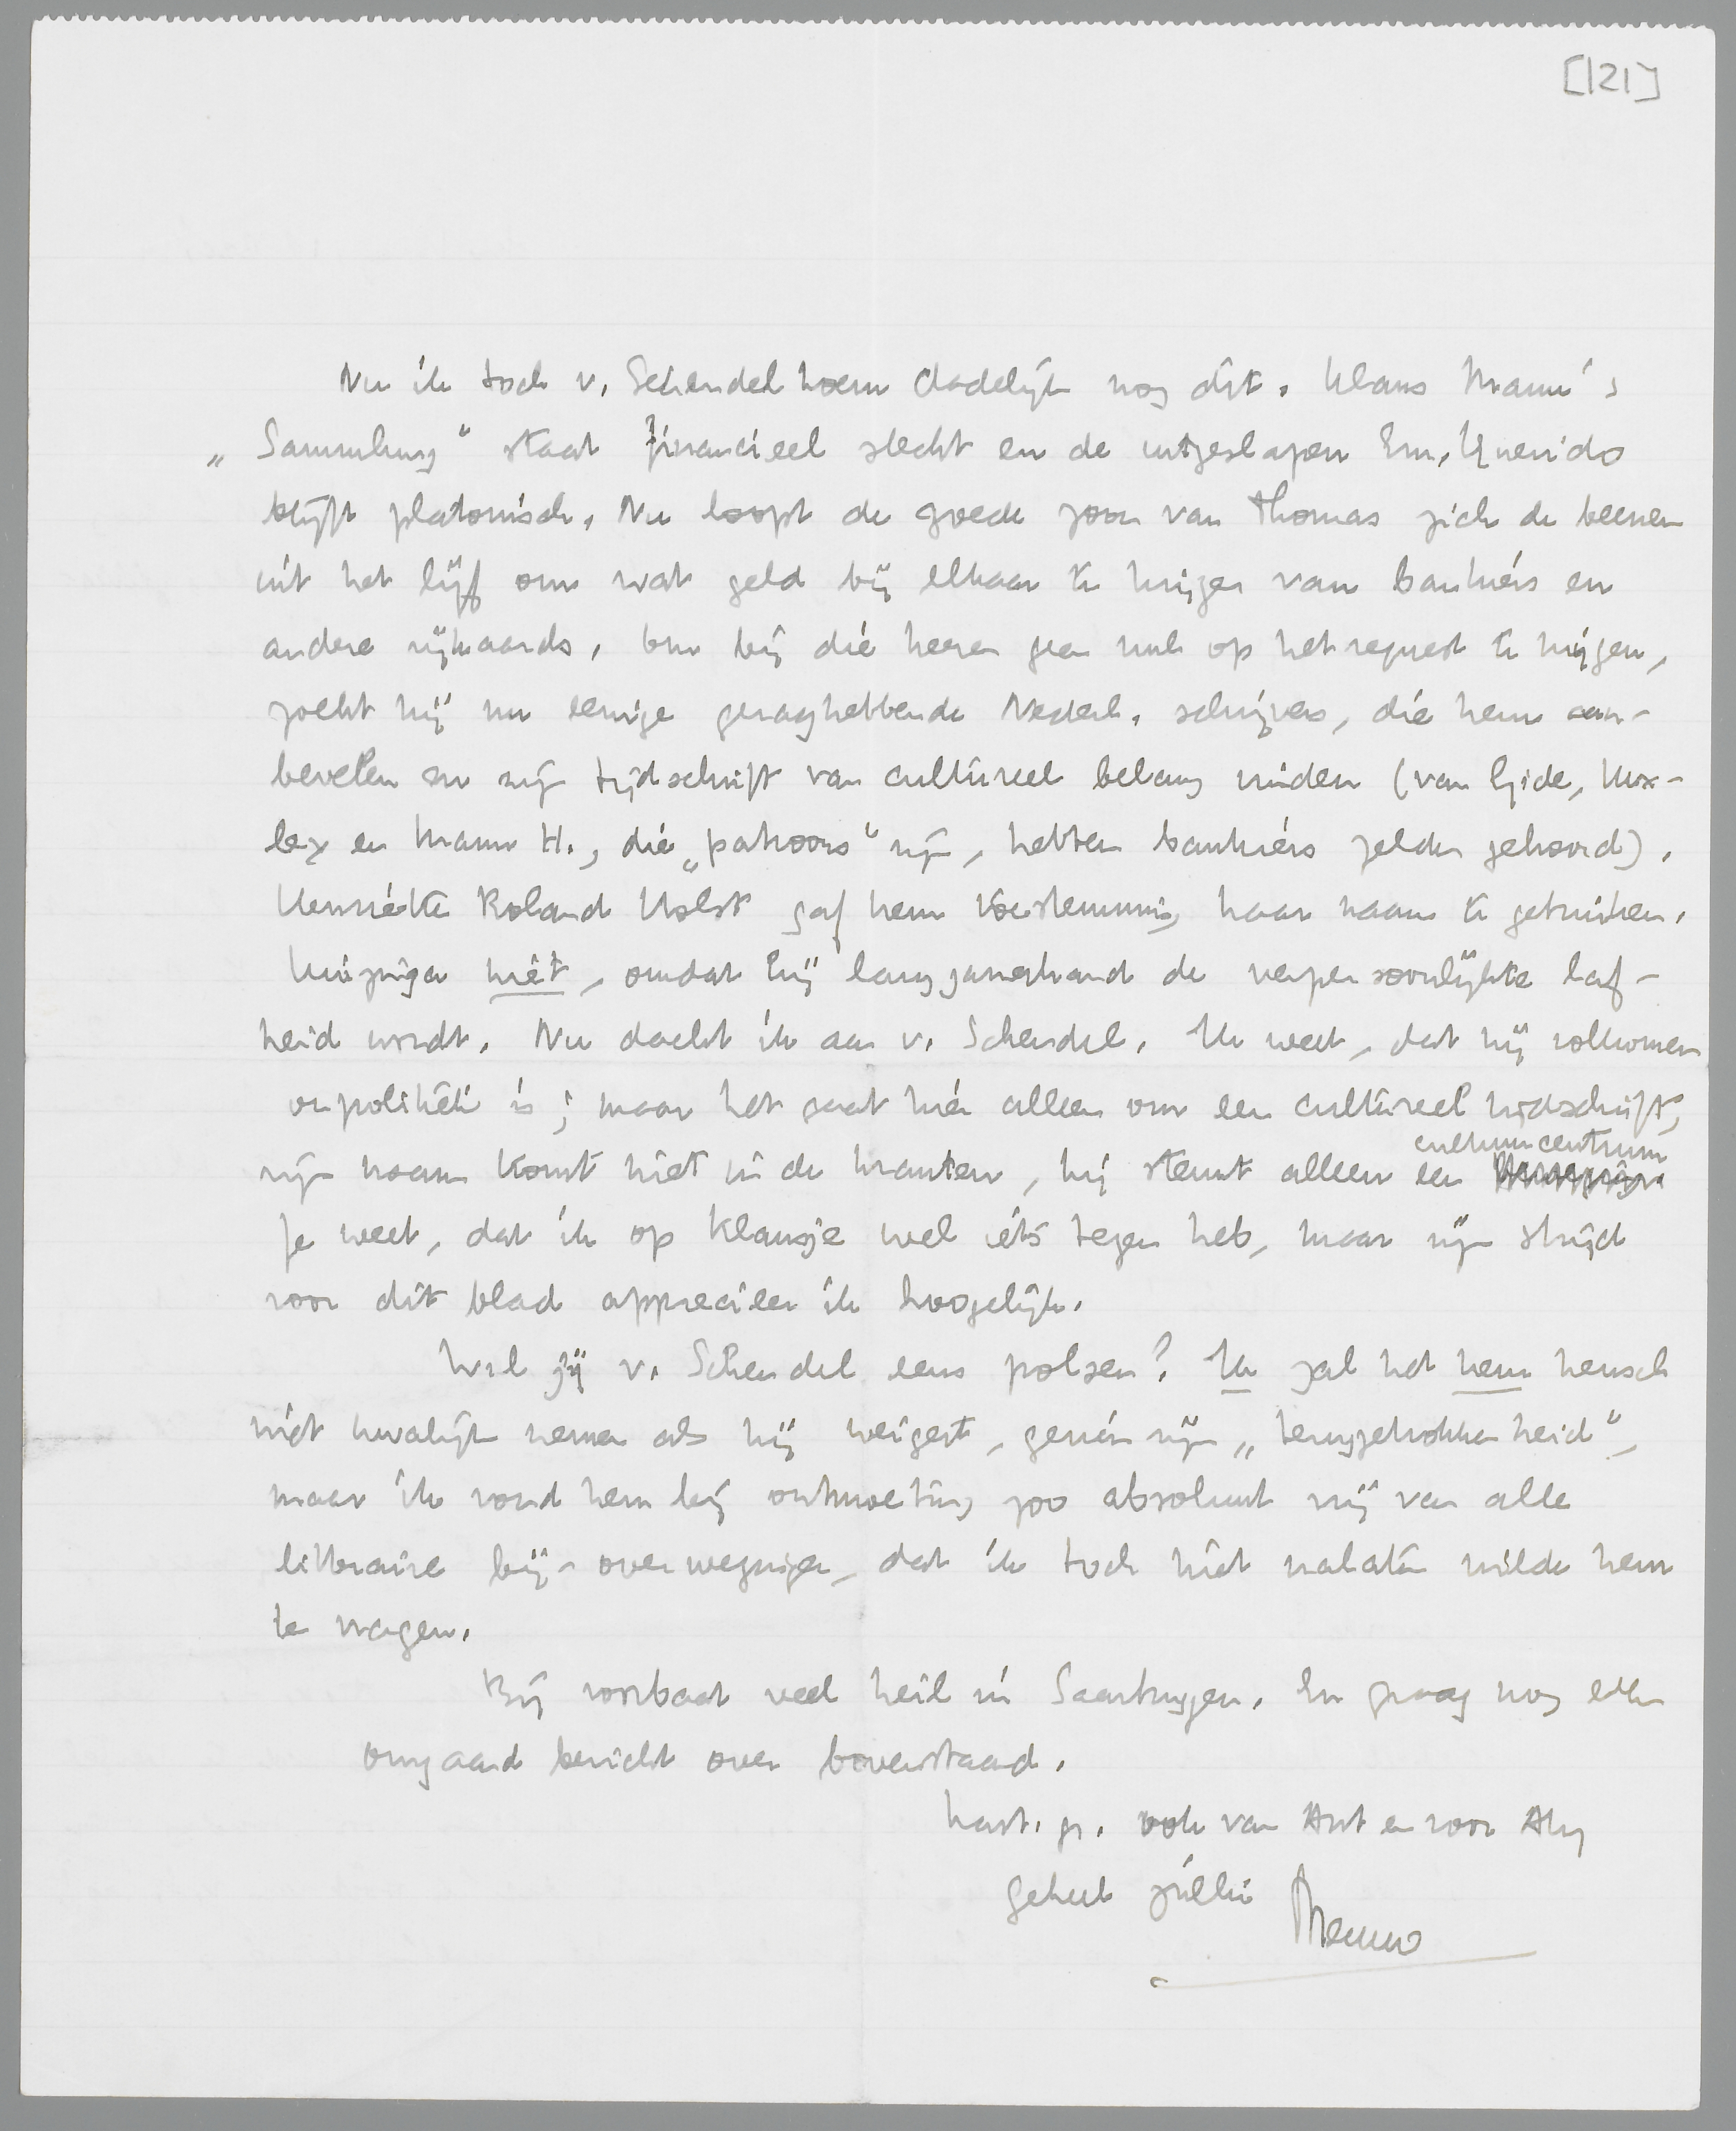 [121]
Nu ik toch v. Schendel noem dadelijk nog dit. Klaus Mann's
„Sammlung" staat financieel slecht en de uitgeslapen Em. Querido
blijft platonisch. Nu loopt de goede zoon van Thomas zich de beenen
uit het lijf om wat geld bij elkaar te krijgen van bankiers en
andere rijkaards. Om bij die heeren geen nul op het request te krijgen,
zoekt hij nu eenige gezaghebbende Nederl. schrijvers, die hem aan-
bevelen en zijn tijdschrift van cultureel belang vinden (van Gide, Hux-
ley en Mann H., die „patroons" zijn, hebben bankiers zelden gehoord).
Henriëtte Roland Holst gaf hem toestemming haar naam te gebruiken.
Huizinga niet, omdat hij langzamerhand de verpersoonlijkte laf-
heid wordt. Nu dacht ik aan v. Schendel. Ik weet, dat hij volkomen
onpolitiek is; maar het gaat hier alleen om een cultureel tijdschrift,
zijn naam komt niet in de kranten, hij steunt alleen een cultuurcentrum
Je weet, dat ik op Klausje wel iets tegen heb, maar zijn strijd
voor dit blad apprecieer ik hoogelijk.
Wil jij v. Schendel eens polsen? Ik zal het hem heusch
niet kwalijk nemen als hij weigert, gezien zijn „teruggetrokkenheid",
maar ik vond hem bij ontmoeting zoo absoluut vrij van alle
litteraire bij-overwegingen, dat ik toch niet nalaten wilde hem
te vragen.
Bij voorbaat veel heil in Saarbruggen. En graag nog even
omgaand bericht over bovenstaand.
hart. gr. ook van Ant en voor Alg
geheel jullie Menno